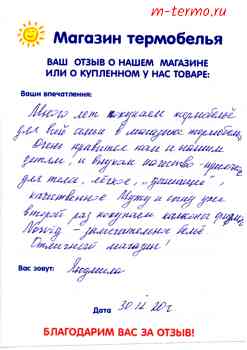 m-termo.ru
Магазин термобелья
ВАШ ОТЗЫВ О НАШЕМ МАГАЗИНЕ
ИЛИ О КУПЛЕННОМ У НАС ТОВАРЕ:
Ваши впечатления:
Много лет покупаем термобельё
для всей семьи в магазине термобелья
Очень нравится нам и нашим
детям, и внукам качество
для тела, лёгкое, "дышащее",
качественное Мужу и сыну уже
второй раз покупаем кальсоны фирмы
Norveg - замечательное бельё
Отличный магазин!
Вас зовут: Людмила
Дата 30.12.20г
БЛАГОДАРИМ ВАС ЗА ОТЗЫВ!